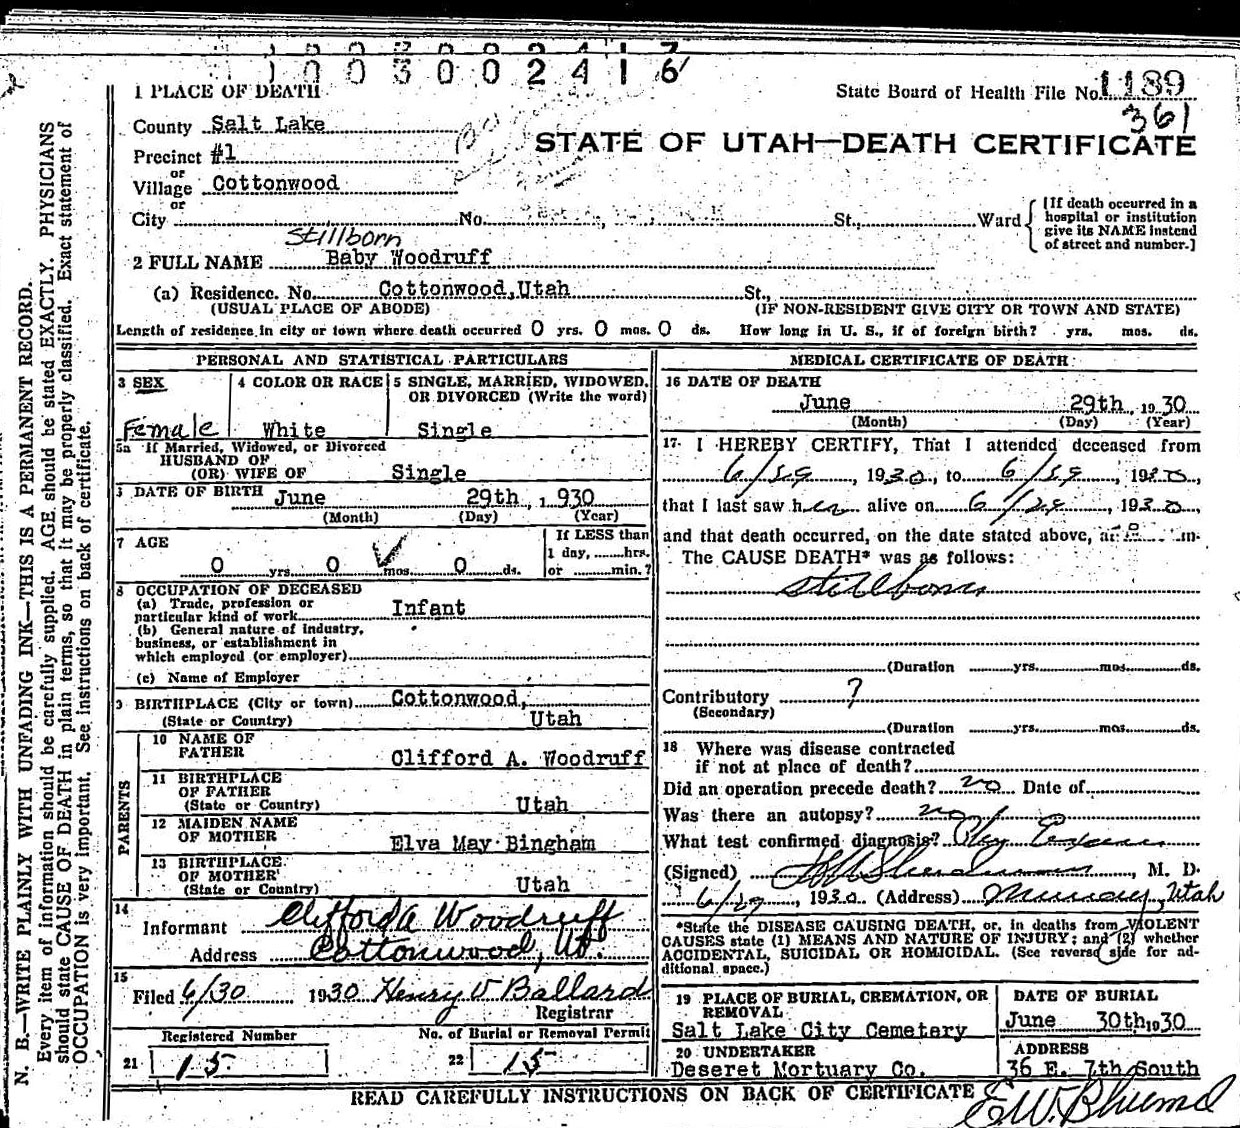 1003002416
1 PLACE OF DEATH
State Board of Health File No. 1189
361
County Salt Lake
STATE OF UTAH—DEATH CERTIFICATE
Precinct #1
or
Village Cottonwood
or
City No. St., Ward
[If death occurred in a hospital or institution give its NAME instead of street and number.]
Stillborn
2 FULL NAME Baby Woodruff
(a) Residence. No. Cottonwood, Utah St.,
(USUAL PLACE OF ABODE) (IF NON-RESIDENT GIVE CITY OR TOWN AND STATE)
Length of residence in city or town where death occurred 0 yrs. 0 mos. 0 ds. How long in U. S., if of foreign birth? yrs. mos. ds.
PERSONAL AND STATISTICAL PARTICULARS
3 SEX
Female
4 COLOR OR RACE
White
5 SINGLE, MARRIED, WIDOWED, OR DIVORCED (Write the word)
Single
5a If Married, Widowed, or Divorced
HUSBAND OF
(OR) WIFE OF Single
DATE OF BIRTH June 29th, 1930
(Month) (Day) (Year)
7 AGE
0 yrs. 0 mos. 0 ds.
If LESS than
1 day, hrs.
or min.?
8 OCCUPATION OF DECEASED
(a) Trade, profession or
particular kind of work Infant
(b) General nature of industry,
business, or establishment in
which employed (or employer)
(c) Name of Employer
9 BIRTHPLACE (City or town) Cottonwood,
(State or Country) Utah
PARENTS
10 NAME OF
FATHER Clifford A. Woodruff
11 BIRTHPLACE
OF FATHER
(State or Country) Utah
12 MAIDEN NAME
OF MOTHER Elva May Bingham
13 BIRTHPLACE
OF MOTHER
(State or Country) Utah
14
Informant Clifford A Woodruff
Address Cottonwood, Ut.
15
Filed 6/30 1930 Henry V Ballard
Registrar
Registered Number No. of Burial or Removal Permit
21 15 22 15
MEDICAL CERTIFICATE OF DEATH
16 DATE OF DEATH
June 29th, 1930
(Month) (Day) (Year)
17 I HEREBY CERTIFY, That I attended deceased from
6/29, 1930, to 6/29, 1930,
that I last saw her alive on 6/29, 1930,
and that death occurred, on the date stated above, at m.
The CAUSE DEATH* was as follows:
Stillborn
(Duration yrs. mos. ds.
Contributory ?
(Secondary)
(Duration yrs. mos. ds.
18 Where was disease contracted
if not at place of death?
Did an operation precede death? no Date of
Was there an autopsy? no
What test confirmed diagnosis? Phy Exam
(Signed) M. D.
6/29, 1930 (Address) Murray, Utah
*State the DISEASE CAUSING DEATH, or, in deaths from VIOLENT
CAUSES state (1) MEANS AND NATURE OF INJURY; and (2) whether
ACCIDENTAL, SUICIDAL OR HOMICIDAL. (See reverse side for ad-
ditional space.)
19 PLACE OF BURIAL, CREMATION, OR
REMOVAL
Salt Lake City Cemetery
DATE OF BURIAL
June 30th 1930
20 UNDERTAKER
Deseret Mortuary Co.
ADDRESS
36 E. 7th South
READ CAREFULLY INSTRUCTIONS ON BACK OF CERTIFICATE
N. B.—WRITE PLAINLY WITH UNFADING INK—THIS IS A PERMANENT RECORD.
Every item of information should be carefully supplied. AGE should be stated EXACTLY. PHYSICIANS
should state CAUSE OF DEATH in plain terms, so that it may be properly classified. Exact statement of
OCCUPATION is very important. See instructions on back of certificate.